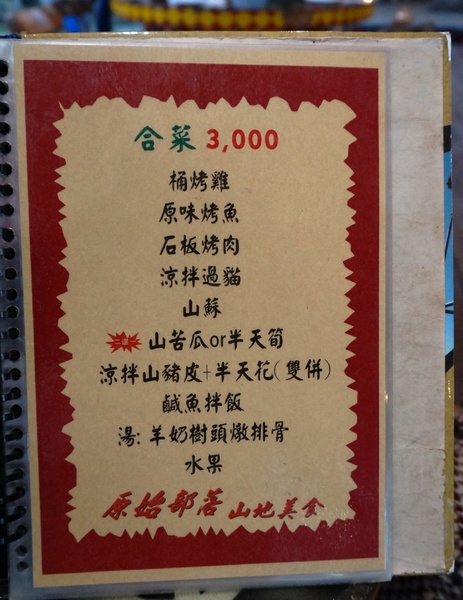 合菜 3,000
桶烤雞
原味烤魚
石板烤肉
涼拌過貓
山蘇
山苦瓜or半天筍
涼拌山豬皮+半天花(雙併)
鹹魚拌飯
湯: 羊奶樹頭燉排骨
水果
原始部落 山地美食